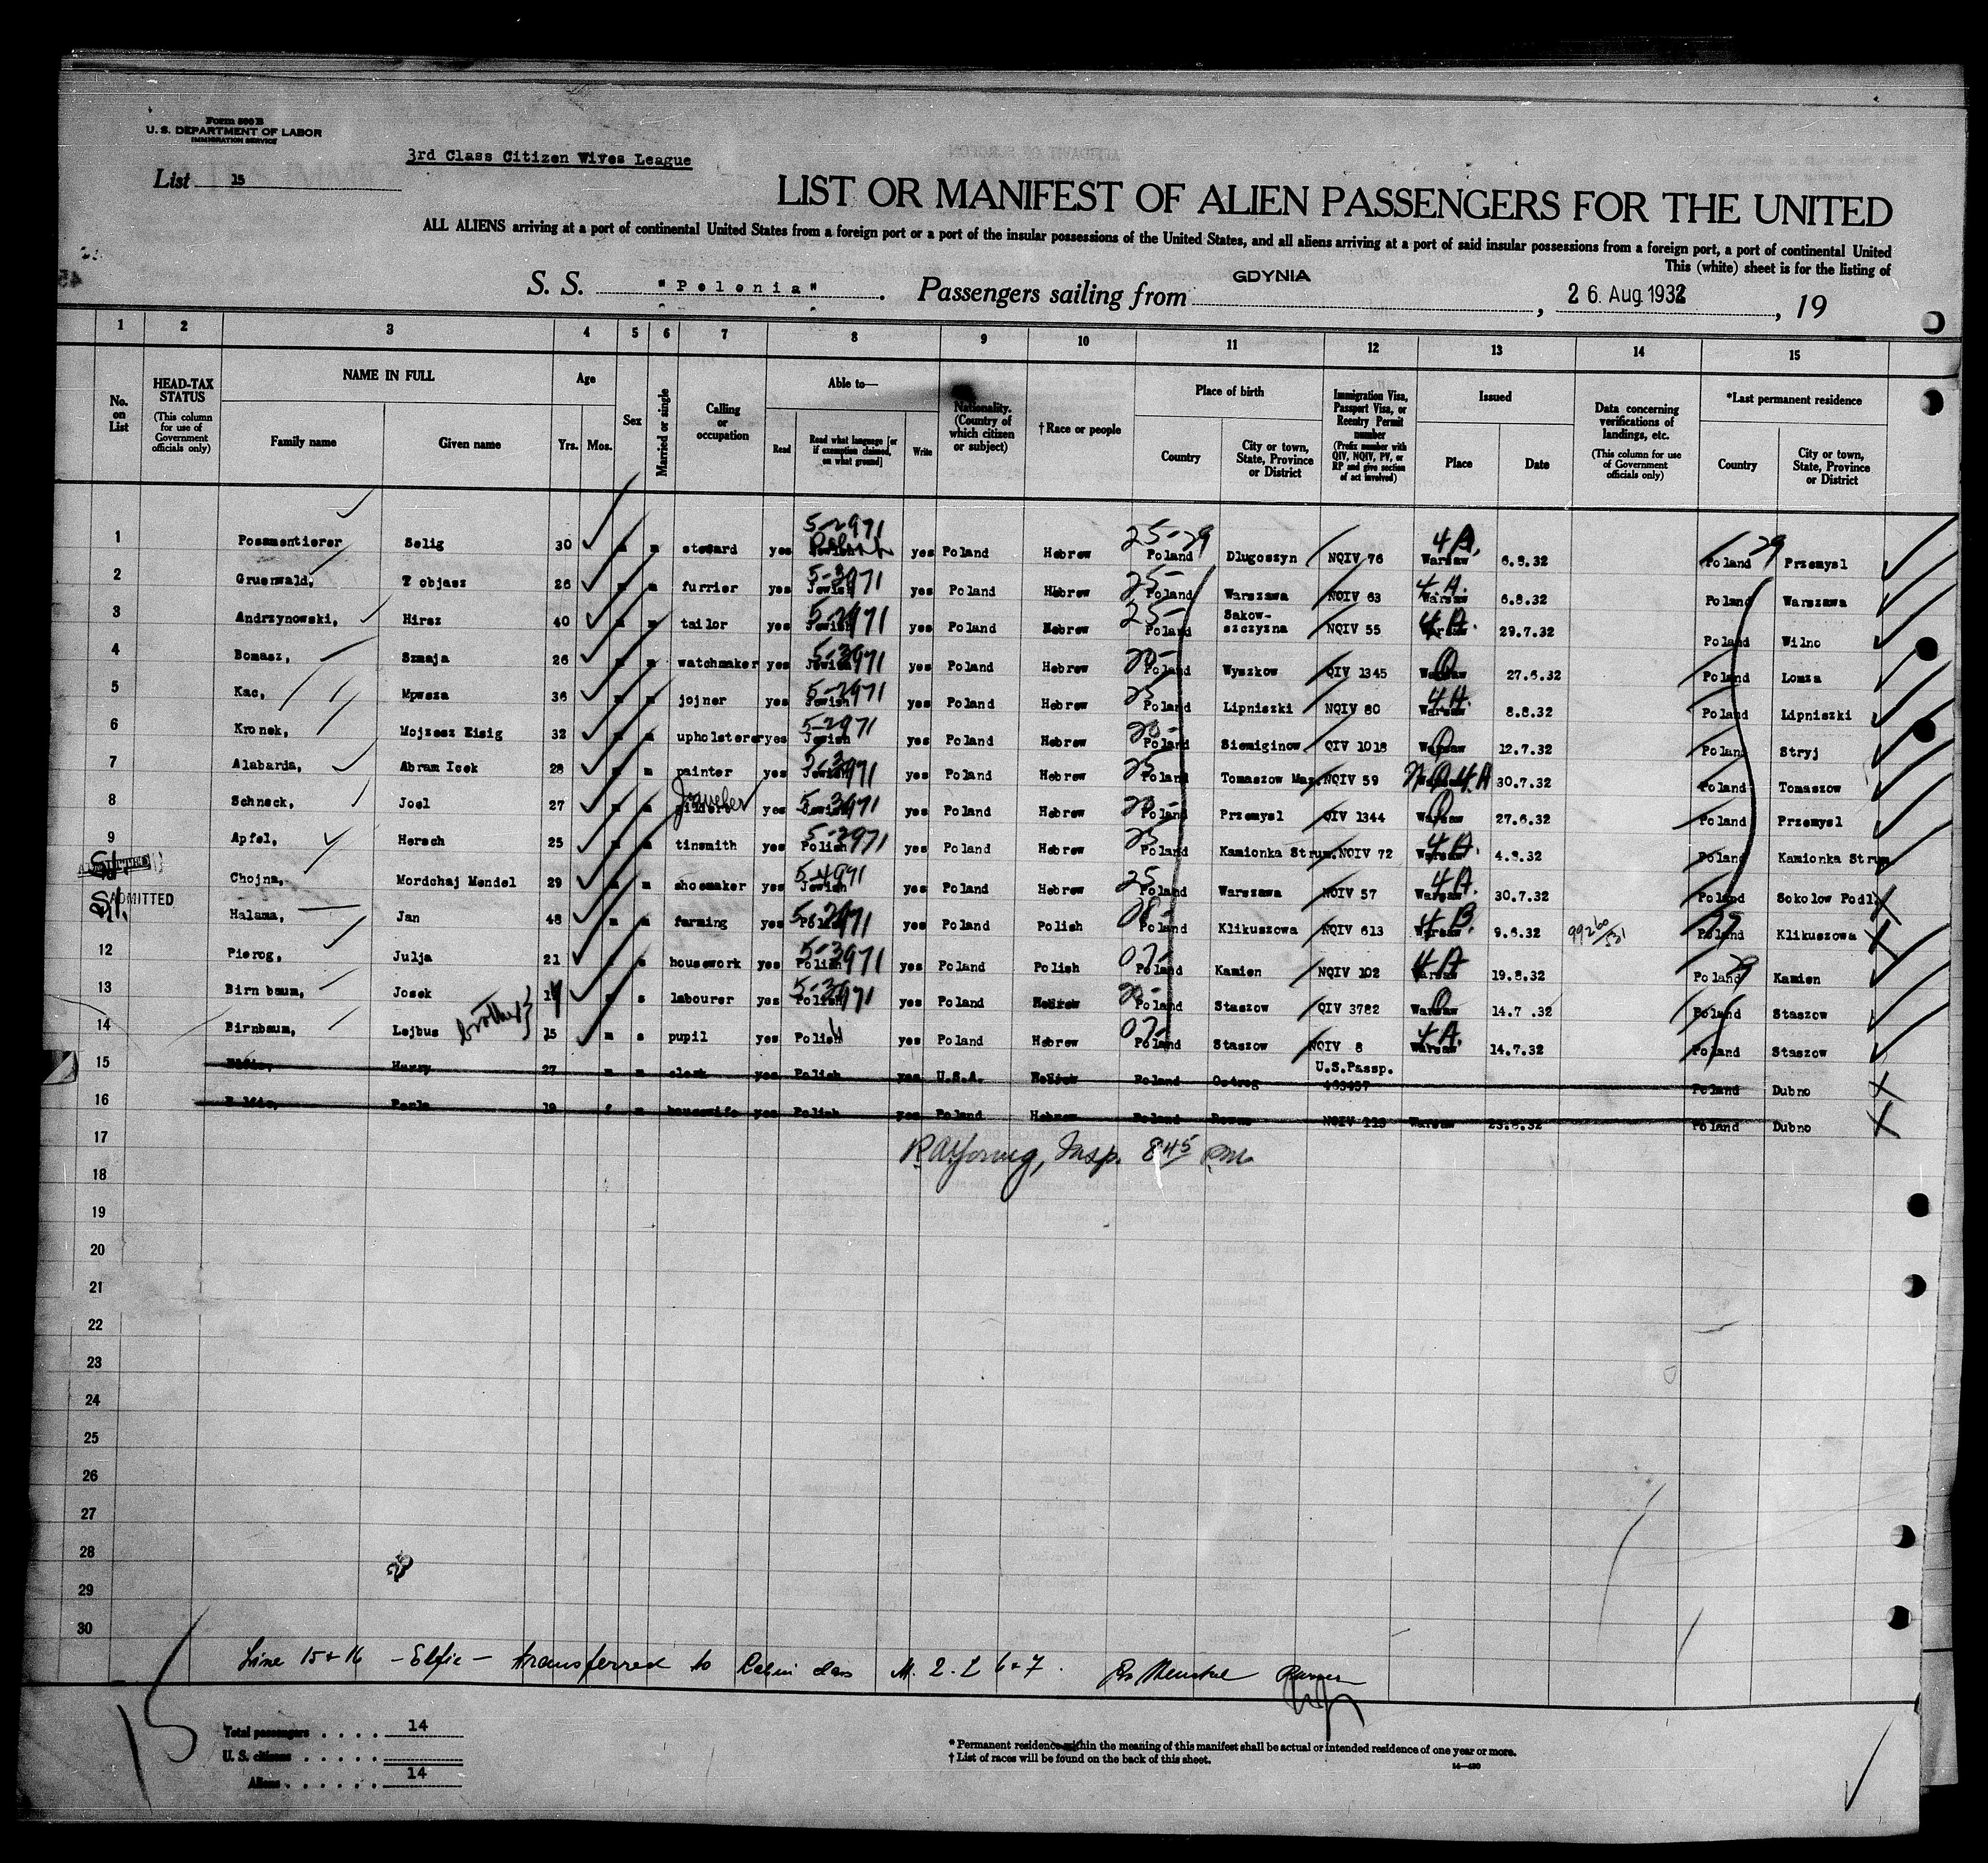 Form 500 B
U. S. DEPARTMENT OF LABOR
IMMIGRATION SERVICE
3rd Class Citizen Wives League
List 15
LIST OR MANIFEST OF ALIEN PASSENGERS FOR THE UNITED
ALL ALIENS arriving at a port of continental United States from a foreign port or a port of the insular possessions of the United States, and all aliens arriving at a port of said insular possessions from a foreign port, a port of continental United
This (white) sheet is for the listing of
S. S. "Polonia". Passengers sailing from GDYNIA, 26. Aug. 1932, 19
1 2 3 4 5 6 7 8 9 10 11 12 13 14 15
No. on List
HEAD-TAX STATUS (This column for use of Government officials only)
NAME IN FULL Family name Given name
Age Yrs. Mos.
Sex
Married or single
Calling or occupation
Able to— Read Read what language [or if exemption claimed, on what ground] Write
Nationality. (Country of which citizen or subject)
†Race or people
Place of birth Country City or town, State, Province or District
Immigration Visa, Passport Visa, or Reentry Permit number (Prefix number with QIV, NQIV, PV, or RP and give section of act involved)
Issued Place Date
Data concerning verifications of landings, etc. (This column for use of Government officials only)
*Last permanent residence Country City or town, State, Province or District
1 Possmentierer Selig 30 m m steward yes 5-2971 yes Poland Hebrew 25-29 Poland Dlugoszyn NQIV 76 4 A. Warsaw 6.8.32 Poland 29 Przemysl
2 Gruenwald, Tobjasz 26 m m furrier yes 5-3971 Jewish yes Poland Hebrew 25- Poland Warszawa NQIV 63 4 A. Warsaw 6.8.32 Poland Warszawa
3 Andrzynowski, Hirsz 40 m m tailor yes 5-2971 Jewish yes Poland Hebrew 25- Poland Sakow-szczyzna NQIV 55 4 A. Warsaw 29.7.32 Poland Wilno
4 Bomasz, Szmaja 26 m m watchmaker yes 5-3971 Jewish yes Poland Hebrew 20- Poland Wyszkow QIV 1345 Q Warsaw 27.6.32 Poland Lomza
5 Kac, Mpwsza 36 m m jojner yes 5-2971 Jewish yes Poland Hebrew 25 Poland Lipniszki NQIV 80 4 A. Warsaw 8.8.32 Poland Lipniszki
6 Kronek, Mojzesz Eisig 32 m m upholsterer yes 5-2971 Jewish yes Poland Hebrew 20- Poland Siemiginow QIV 1018 Q Warsaw 12.7.32 Poland Stryj
7 Alabarda, Abram Icek 28 m m painter yes Jewish yes Poland Hebrew 25 Poland Tomaszow Maz. NQIV 59 4 A Warsaw 30.7.32 Poland Tomaszow
8 Schneck, Joel 27 m m yes 5-3971 Jewish yes Poland Hebrew 20- Poland Przemysl QIV 1344 Q Warsaw 27.6.32 Poland Przemysl
9 Apfel, Hersch 25 m m tinsmith yes 5-2971 Polish yes Poland Hebrew 25 Poland Kamionka Strum. NQIV 72 4 A. Warsaw 4.8.32 Poland Kamionka Strum
SI. ADMITTED Chojna, Mordchaj Mendel 29 m m shoemaker yes 5-4971 Jewish yes Poland Hebrew 25 Poland Warszawa NQIV 57 4 A. Warsaw 30.7.32 Poland Sokolow Podl. X
SI. ADMITTED Halama, Jan 48 m m farming yes Polish yes Poland Polish 08- Poland Klikuszowa NQIV 613 4 B. Warsaw 9.6.32 99260/531 Poland Klikuszowa X
12 Pierog, Julja 21 f s housework yes 5-3971 Polish yes Poland Polish 07- Poland Kamien NQIV 102 4 A Warsaw 19.8.32 Poland 29 Kamien
13 Birnbaum, Josek brothers m s labourer yes 5-3971 Polish yes Poland Hebrew 20- Poland Staszow QIV 3782 Q Warsaw 14.7.32 Poland Staszow
14 Birnbaum, Lejbus 15 m s pupil yes Polish yes Poland Hebrew 07- Poland Staszow NQIV 8 4 A. Warsaw 14.7.32 Poland Staszow
15 Harry 27 m m clerk yes Polish yes U.S.A. Hebrew Poland Ostrog U.S.Passp. Poland Dubno X
16 Perla 19 f m housewife yes Polish yes Poland Hebrew Poland Rowno NQIV 113 Warsaw 23.6.32 Poland Dubno X
17 Insp. 845 P.M.
18
19
20
21
22
23
24
25
26
27
28
29
30
Line 15 + 16 - Elfie - transferred to M. 2. L 6+7. Purser
Total passengers . . . . 14
U. S. citizens . . . . .
Aliens . . . . . . 14
* Permanent residence within the meaning of this manifest shall be actual or intended residence of one year or more.
† List of races will be found on the back of this sheet.
14—430